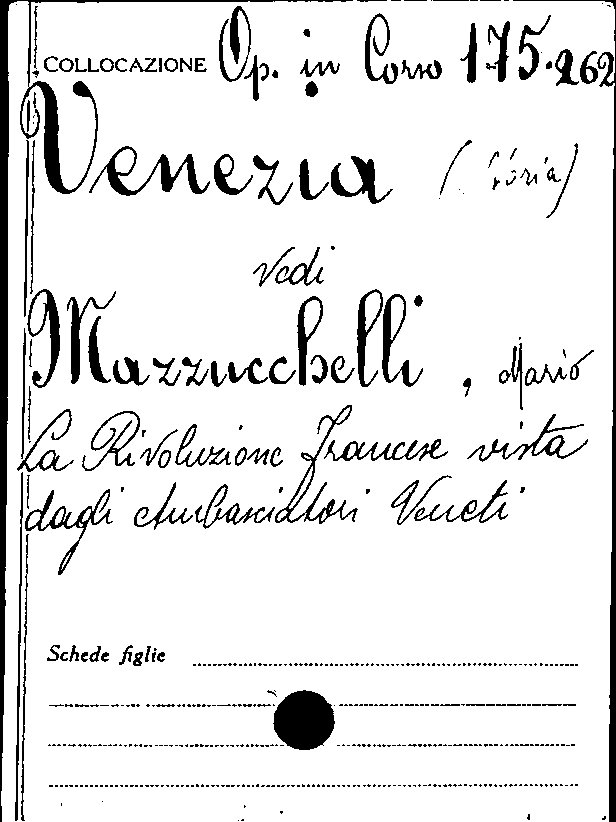 COLLOCAZIONE Op. in Corso 175.262
Venezia (Storia)
Vedi
Mazzucchelli, Mario
La Rivoluzione Francese vista
dagli Ambasciatori Veneti
Schede figlie